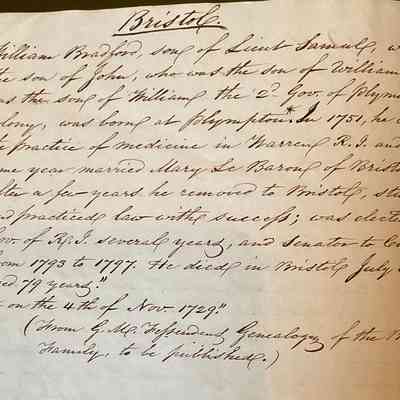 Bristol.
William Bradford, son of Lieut Samuel, w
the son of John, who was the son of William
was the son of William the 2d. Gov. of Plym
Colony, was born at Plympton.* In 1751, he
the practice of medicine in Warren R. I. and
same year married Mary Le Baron of Brist
after a few years he removed to Bristol, stu
and practiced law with success; was elect
Gov. of R. I. several years, and Senator to
from 1793 to 1797. He died in Bristol July
aged 79 years."
* on the 4th of Nov. 1729."
(From G. M. Fessenden's Genealogy of the B
Family, to be published.)